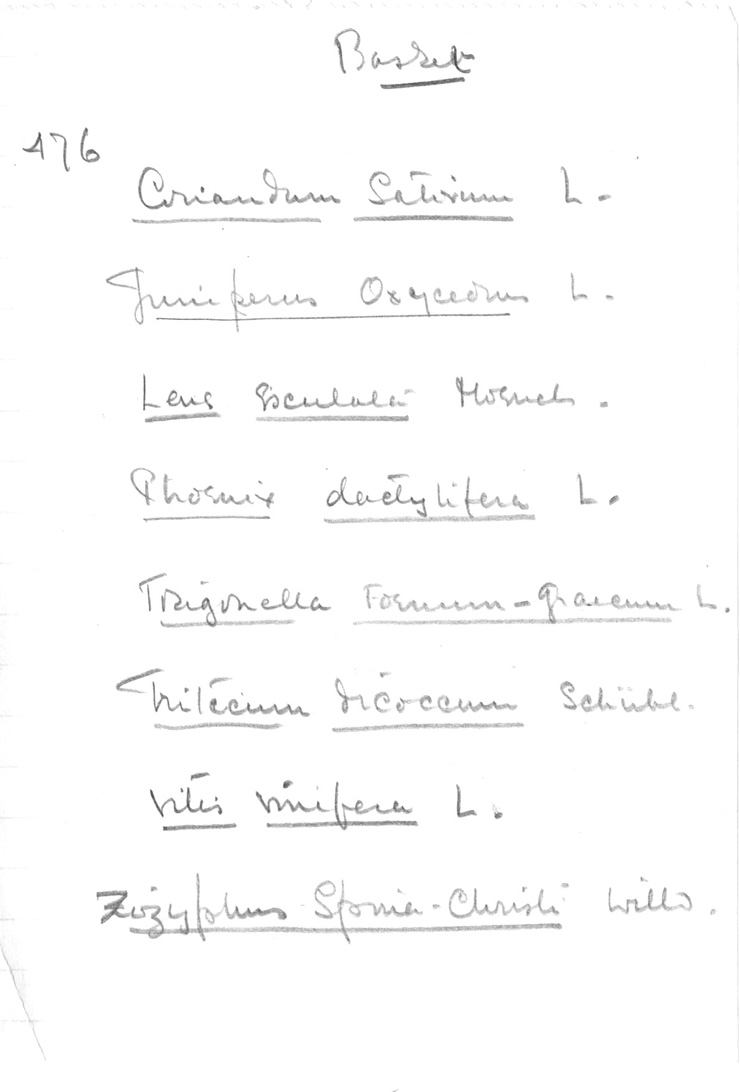 Basket
476
Coriandrum Sativum L.
Juniperus Oxycedrus L.
Lens esculata Moench.
Phoenix dactylifera L.
Trigonella Foenum-graecum L.
Triticum dicoccum Schübl.
Vitis vinifera L.
Zizyphus Spina-Christi Willd.